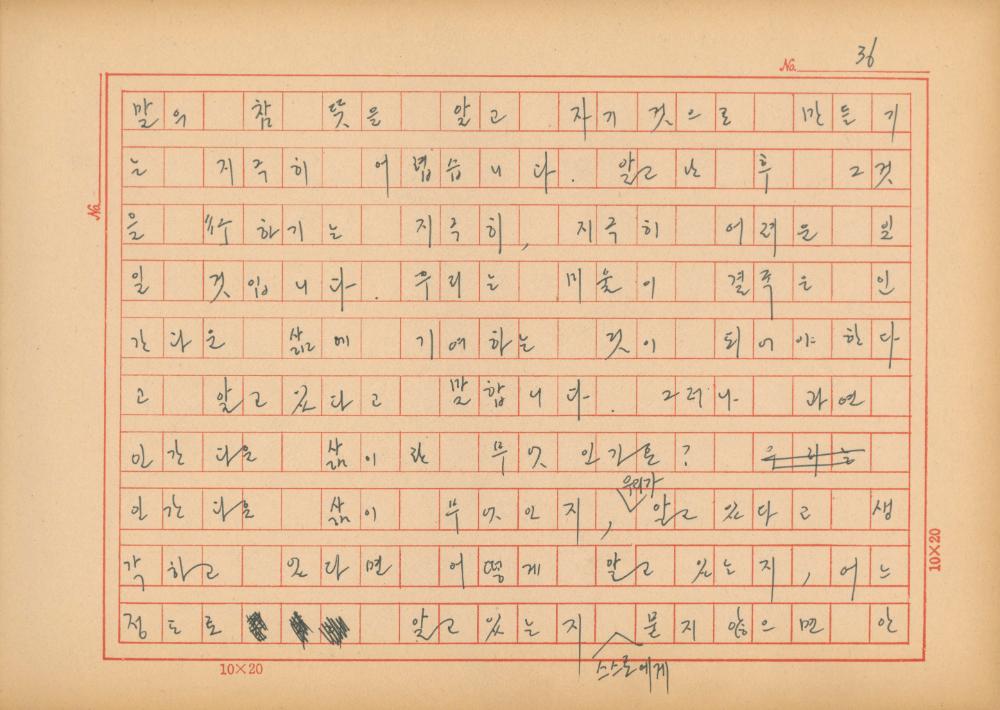 No. 36
No.
말의 참 뜻을 알고 자기 것으로 만들기
는 지극히 어렵습니다. 알고 난 후 그것
을 行하기는 지극히, 지극히 어려운 일
일 것입니다. 우리는 미술이 결국은 인
간다운 삶에 기여하는 것이 되어야 한다
고 알고 있다고 말합니다. 그러나 과연
인간다운 삶이란 무엇인가를? 우리는
우리가
인간다운 삶이 무엇인지, 알고 있다고 생
각하고 있다면 어떻게 알고 있는지, 어느
정도로 알고 있는지 묻지 않으면 안
스스로에게
10×20
10×20